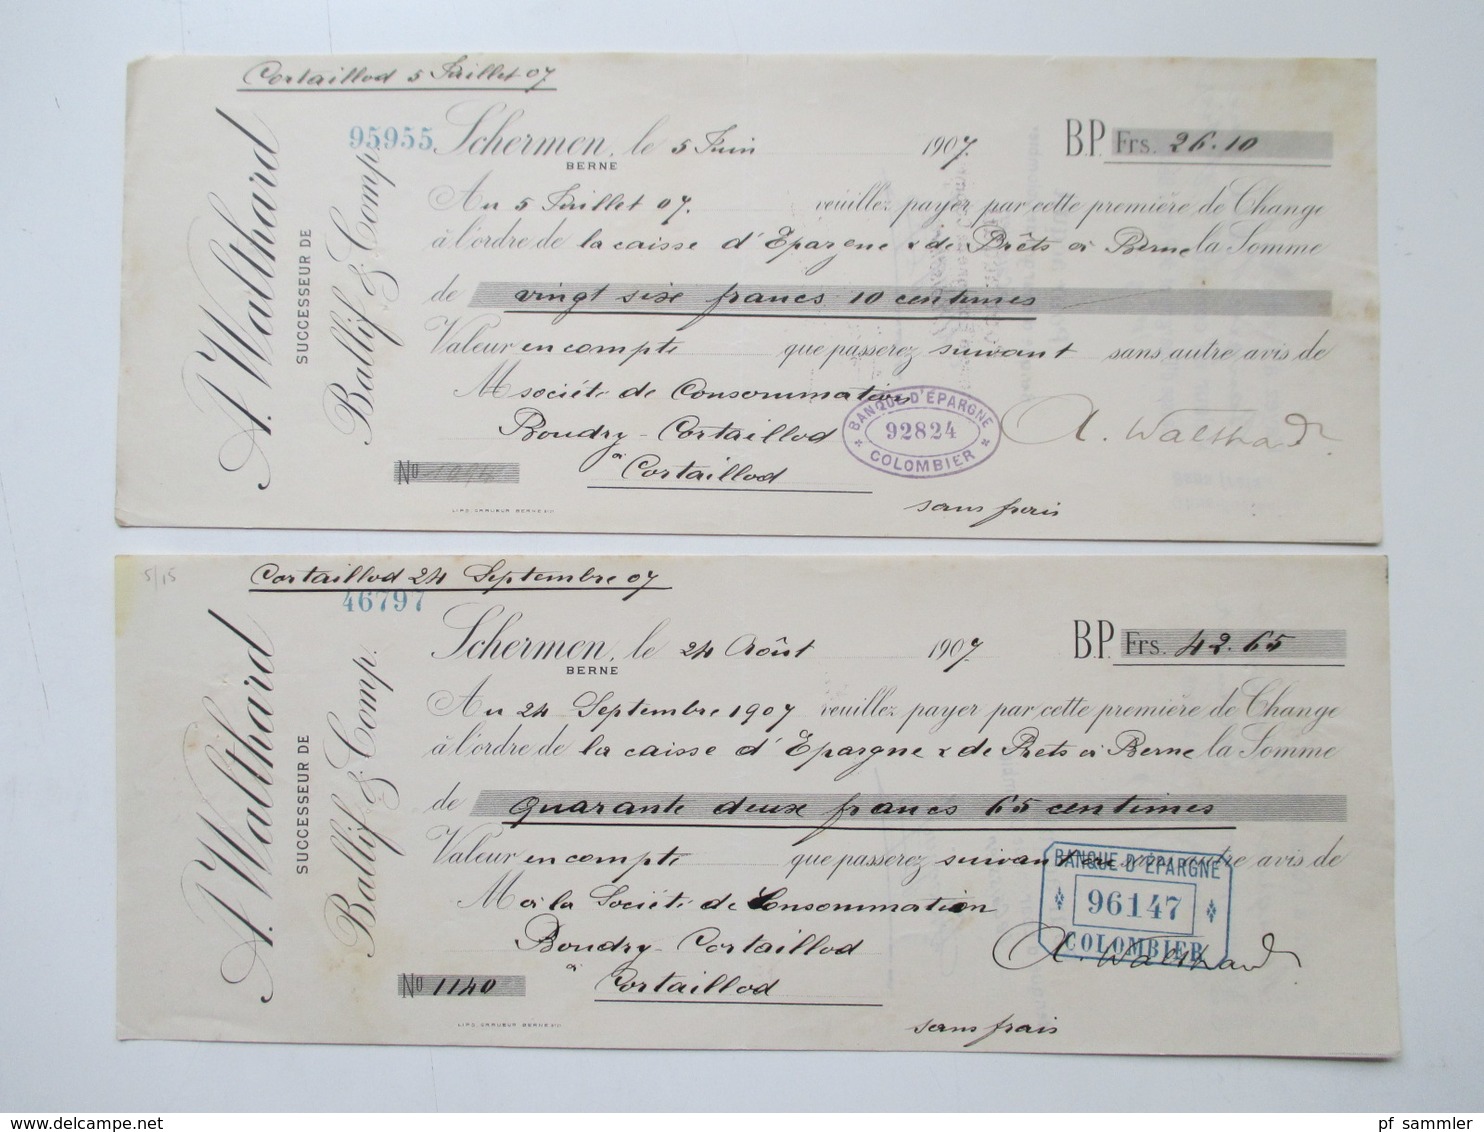 Cortaillod 5 Juillet 07
A. Walthard
SUCCESSEUR DE
Ballif & Comp.
95955
Schermen, le 5 Juin 1907. B.P. Frs. 26.10
BERNE
Au 5 Juillet 07. veuillez payer par cette première de Change
à l'ordre de la caisse d'Epargne & de Prêts à Berne la Somme
de vingt six francs 10 centimes
Valeur en compte que passerez suivant sans autre avis de
M société de Consommation
Boudry-Cortaillod
à Cortaillod
BANQUE D'ÉPARGNE
92824
COLOMBIER
A. Walthard
No
sans frais
5/15
Cortaillod 24 Septembre 07
A. Walthard
SUCCESSEUR DE
Ballif & Comp.
46797
Schermen, le 24 Août 1907. B.P. Frs. 42.65
BERNE
Au 24 Septembre 1907 veuillez payer par cette première de Change
à l'ordre de la caisse d'Epargne & de Prets à Berne la Somme
de quarante deux francs 65 centimes
Valeur en compte que passerez suivant sans autre avis de
M à la Société de Consommation
Boudry-Cortaillod
à Cortaillod
BANQUE D'ÉPARGNE
96147
COLOMBIER
A. Walthard
No 1140
sans frais
pf_sammler